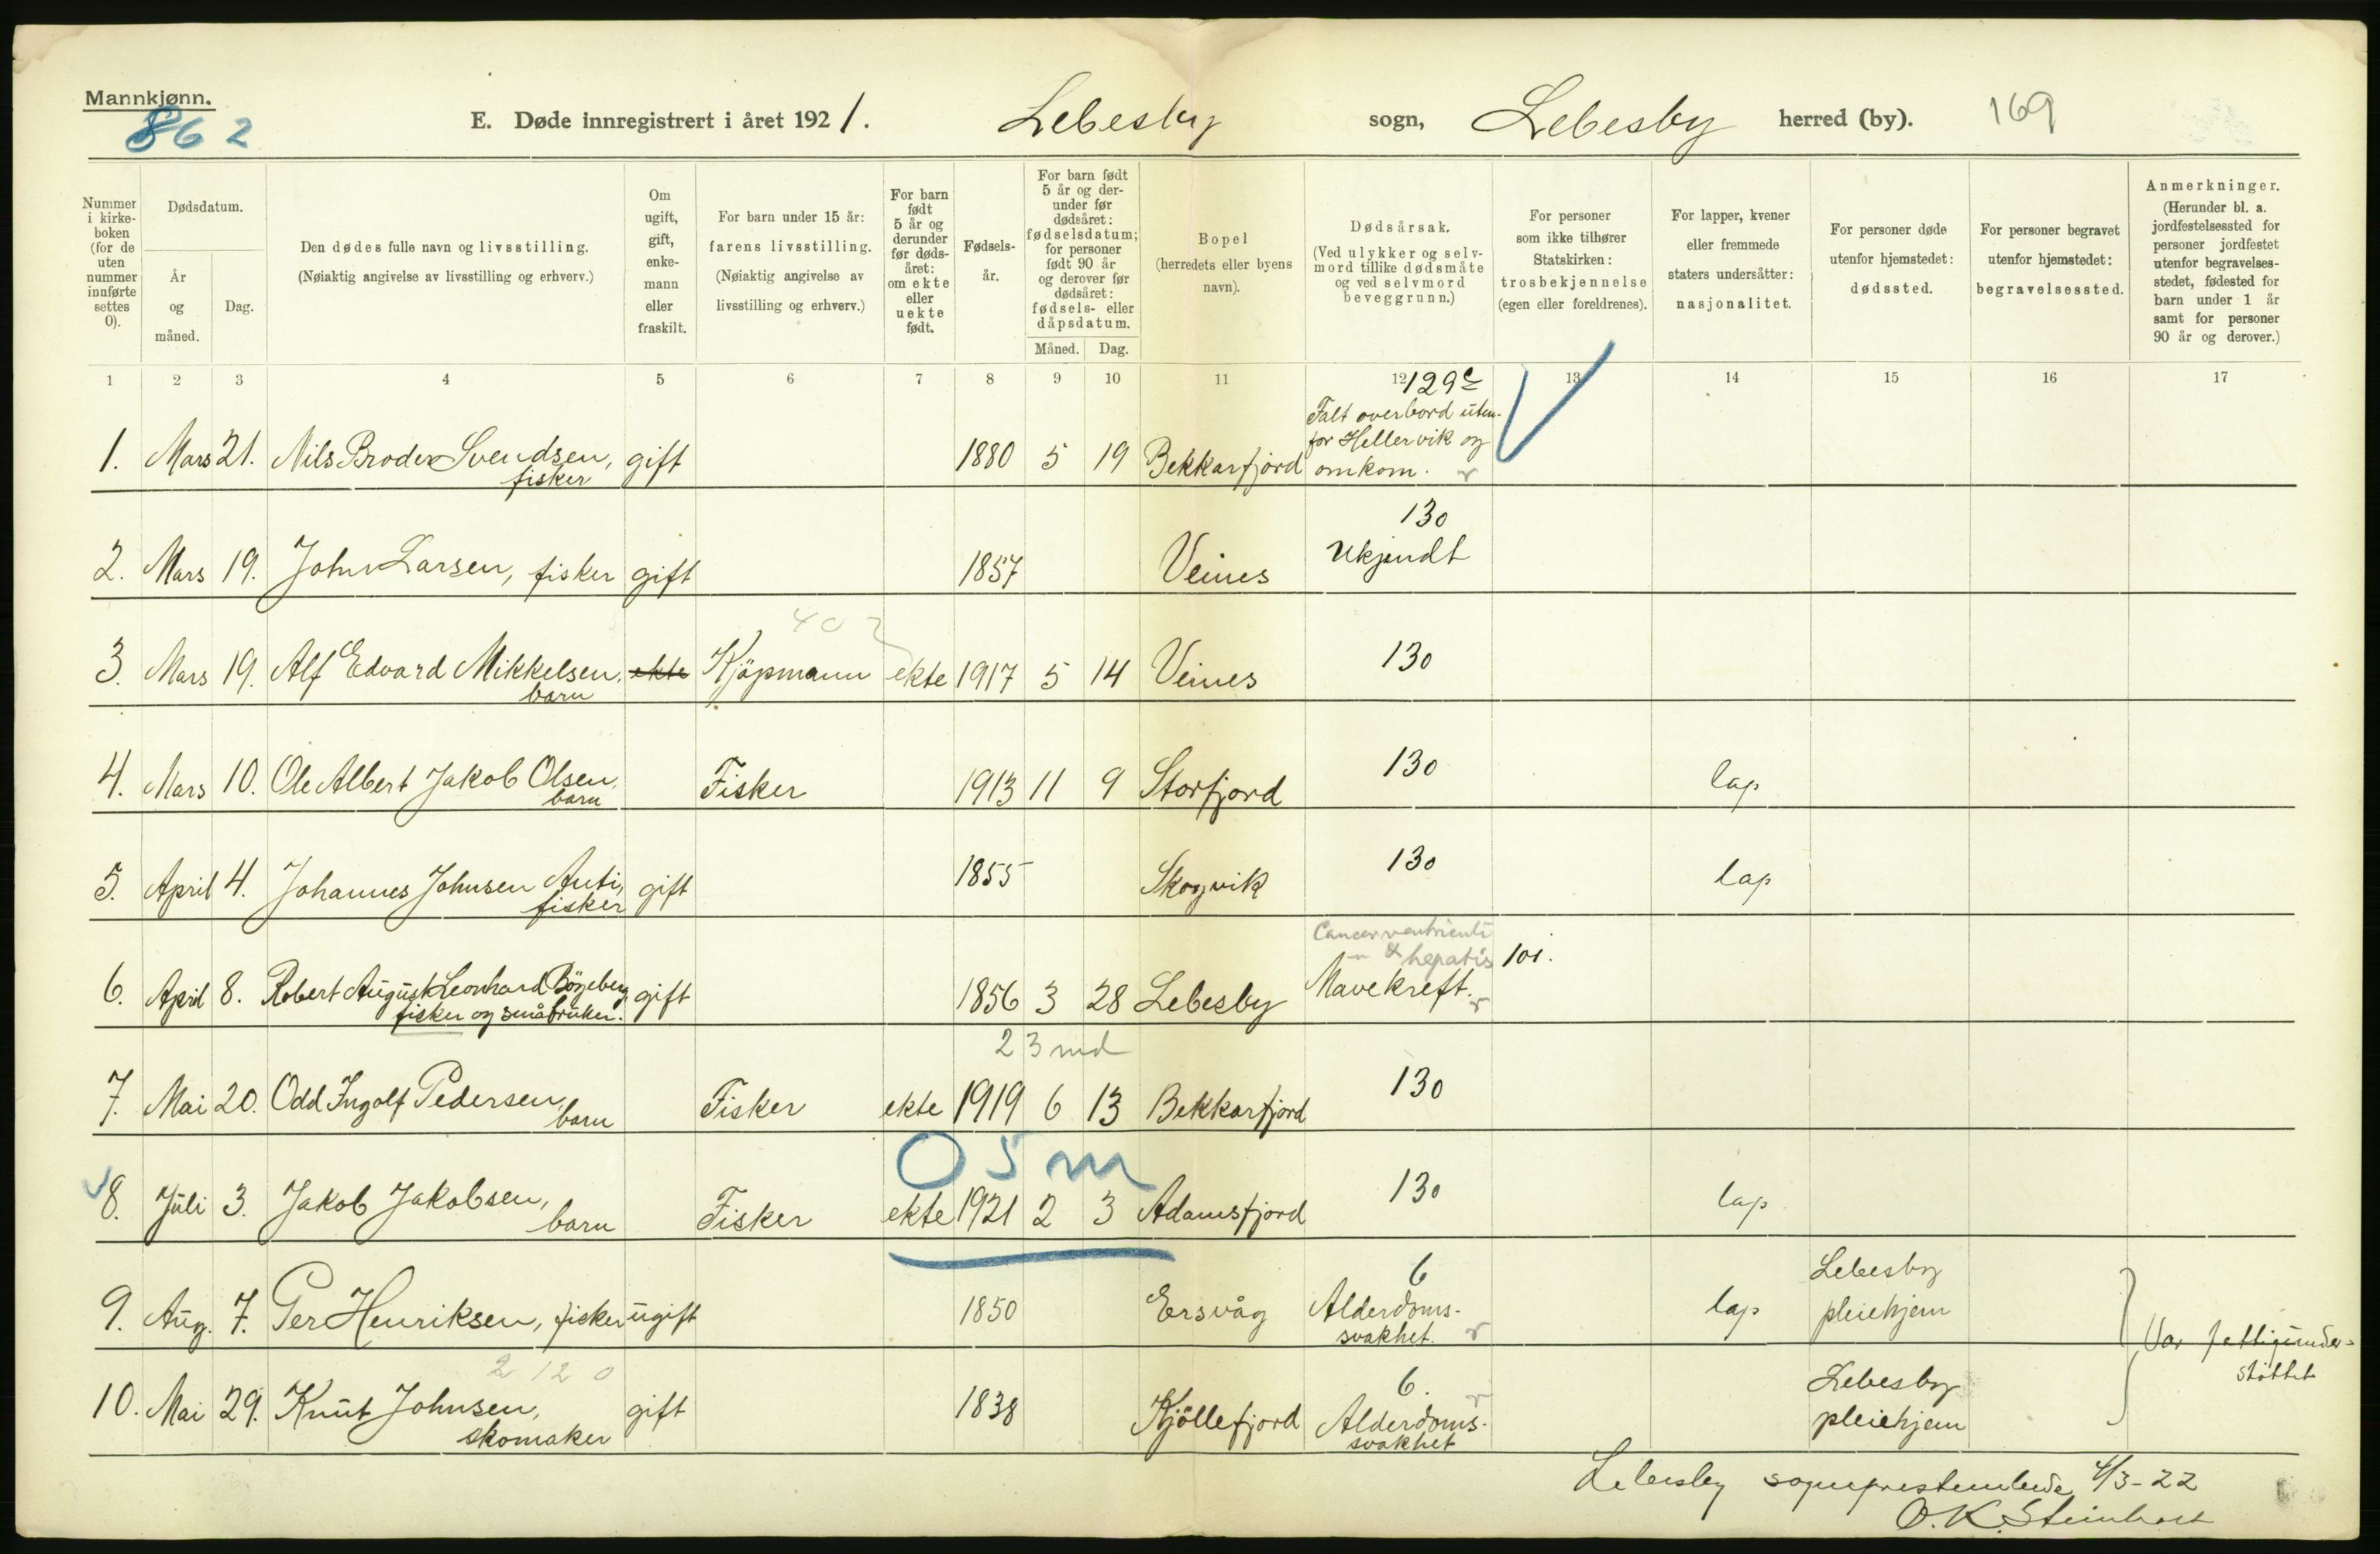 Mannkjønn.
862
E. Døde innregistrert i året 1921. Lebesby sogn, Lebesby herred (by). 169
Nummer i kirke- boken (for de uten nummer innførte settes 0).
Dødsdatum.
År og måned.
Dag.
Den dødes fulle navn og livsstilling.
(Nøiaktig angivelse av livsstilling og erhverv.)
Om ugift, gift, enke- mann eller fraskilt.
For barn under 15 år: farens livsstilling.
(Nøiaktig angivelse av livsstilling og erhverv.)
For barn født 5 år og derunder før døds- året: om ekte eller uekte født.
Fødsels- år.
For barn født 5 år og der- under før dødsåret: fødselsdatum; for personer født 90 år og derover før dødsåret: fødsels- eller dåpsdatum.
Måned. Dag.
Bopel
(herredets eller byens navn).
Dødsårsak.
(Ved ulykker og selv- mord tillike dødsmåte og ved selvmord beveggrunn.)
For personer som ikke tilhører Statskirken: trosbekjennelse (egen eller foreldrenes).
For lapper, kvener eller fremmede staters undersåtter: nasjonalitet.
For personer døde utenfor hjemstedet: dødssted.
For personer begravet utenfor hjemstedet: begravelsessted.
Anmerkninger.
(Herunder bl. a. jordfestelsessted for personer jordfestet utenfor begravelses- stedet, fødested for barn under 1 år samt for personer 90 år og derover.)
1 2 3 4 5 6 7 8 9 10 11 12 13 14 15 16 17
129c
Falt overbord uten-
for Hellervik og
1. Mars 21. Nils Broder Svendsen, gift 1880 5 19 Bekkarfjord omkom.
fisker
130
2. Mars 19. John Larsen, fisker gift 1857 Veines Ukjendt
402
3. Mars 19. Alf Edvard Mikkelsen, ekte Kjöpmann ekte 1917 5 14 Veines 130
barn
4. Mars 10. Ole Albert Jakob Olsen, Fisker 1913 11 9 Storfjord 130 lap
barn
5. April 4. Johannes Johnsen Anti, gift 1855 Skogvik 130 lap
fisker
Cancer ventriculi
& hepatis 101.
6. April 8. Robert August Leonhard Bögeberg gift 1856 3 28 Lebesby Mavekreft.
fisker og småbruker.
23 md
7. Mai 20. Odd Ingolf Pedersen, Fisker ekte 1919 6 13 Bekkarfjord 130
barn
0 5 m
8. Juli 3. Jakob Jakobsen, Fisker ekte 1921 2 3 Adamsfjord 130 lap
barn
6 Lebesby
9. Aug. 7. Per Henriksen, fisker ugift 1850 Ersvåg Alderdoms- lap pleiehjem
svakhet.
Var fattigunder-
støttet
2 12 0
6. Lebesby
10. Mai 29. Knut Johnsen, gift 1838 Kjöllefjord Alderdoms- pleiehjem
skomaker svakhet
Lebesby sogneprestembede 4/3-22
O. K. Steinholt